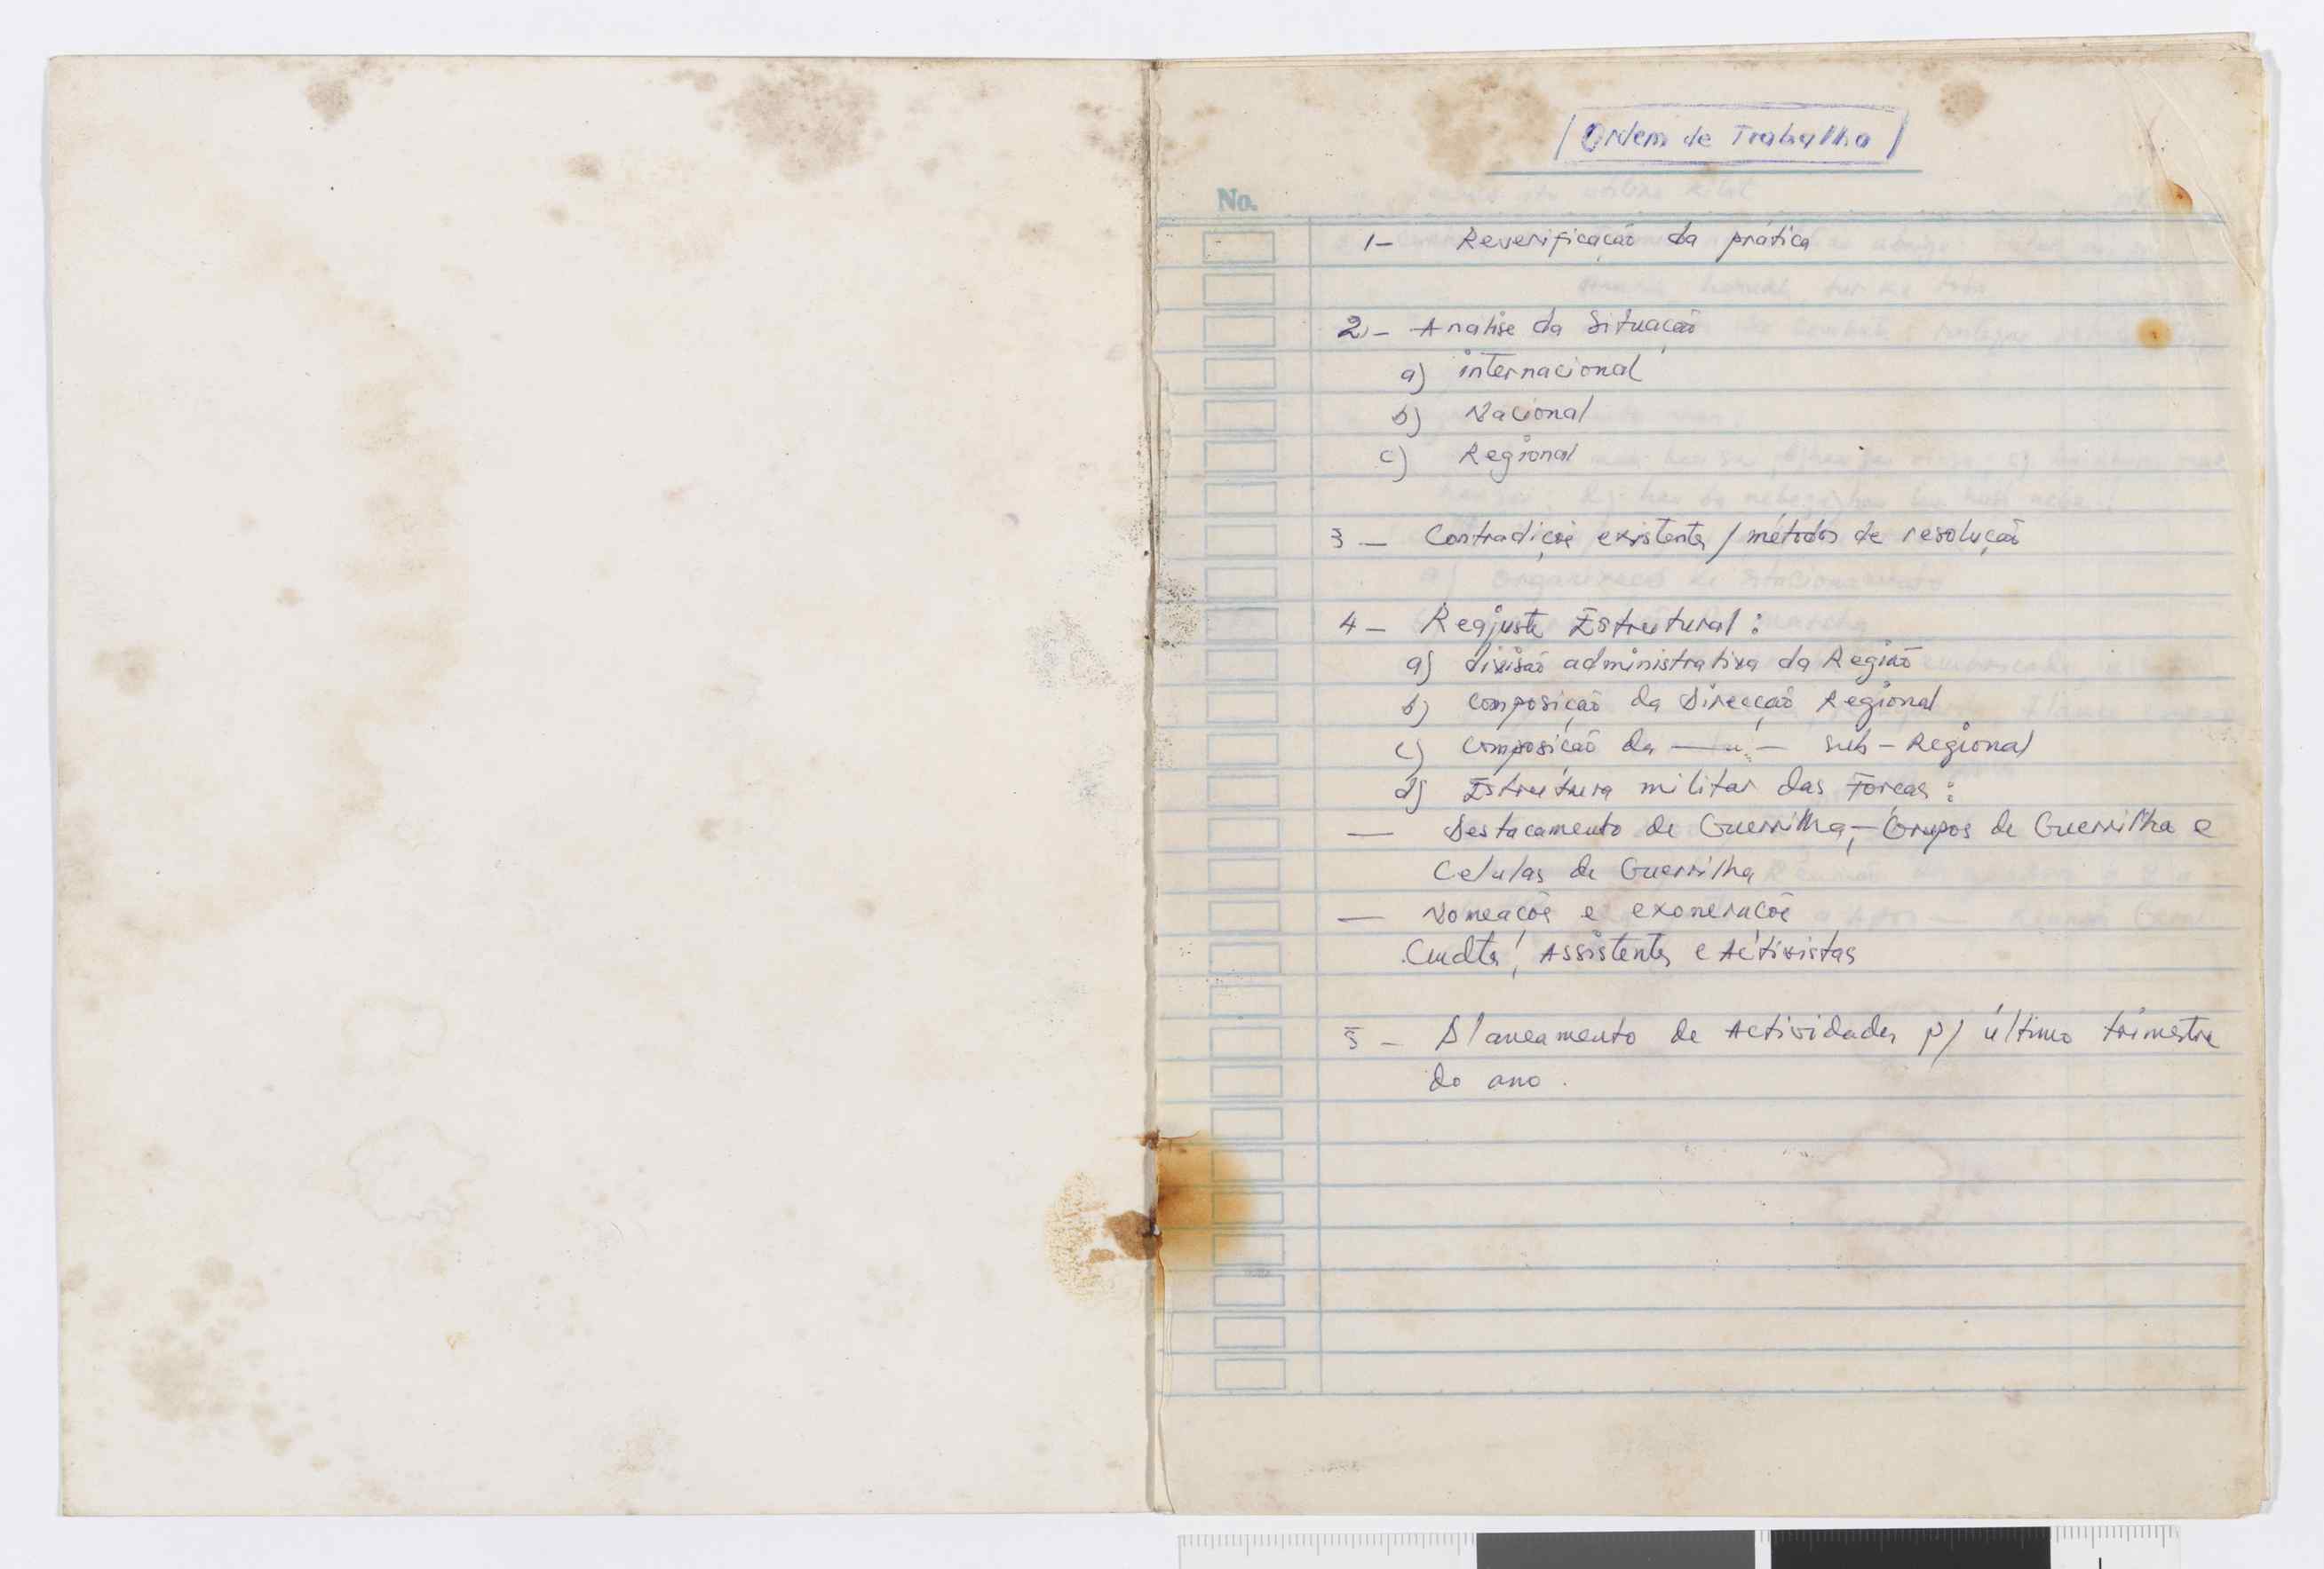 Ordem de Trabalho
No.
1- Reverificação da prática
2- Analise da Situação
a) internacional
b) Nacional
c) Regional
3 - Contradições existentes / métodos de resolução
4 - Reajuste Estrutural :
a) divisão administrativa da Região
b) Composição da Direcção Regional
c) Composição da —— " — Sub-Regional
d) Estrutura militar das Forcas :
— Destacamento de Guerrilha, - Grupos de Guerrilha e
Celulas de Guerrilha
— Nomeações e exonerações
Cmdtes, Assistentes e Activistas
5 - Planeamento de Actividades p/ último trimestre
do ano.